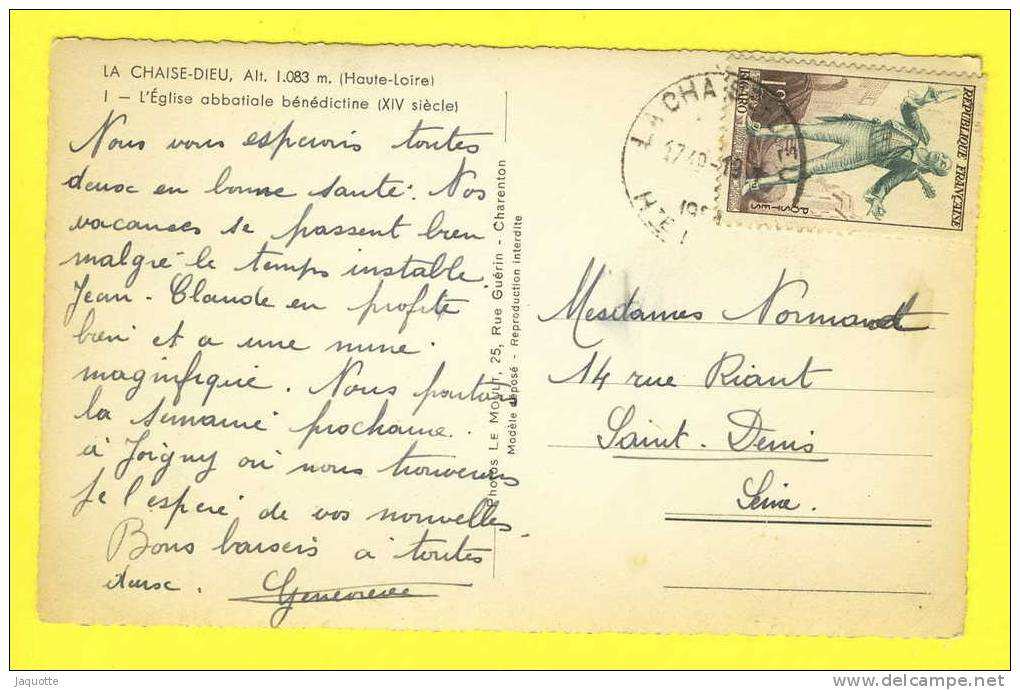 LA CHAISE-DIEU, Alt. 1.083 m. (Haute-Loire)
1 — L'Église abbatiale bénédictine (XIV siècle)
Nous vous espérons toutes
deux en bonne santé. Nos
vacances se passent bien
malgré le temps instable.
Jean-Claude en profite
bien et a une mine
magnifique. Nous partons
la semaine prochaine
à Joigny où nous trouverons
je l'espère de vos nouvelles.
Bons baisers à toutes
deux. Geneviève
Photos LE MOULT, 25, Rue Guérin - Charenton
Modèle déposé - Reproduction interdite
LA CHAISE
HTE
REPUBLIQUE FRANÇAISE
POSTES
FIGARO
Mesdames Normand
14 rue Riant
Saint-Denis
Seine.
Jaquotte
www.delcampe.net